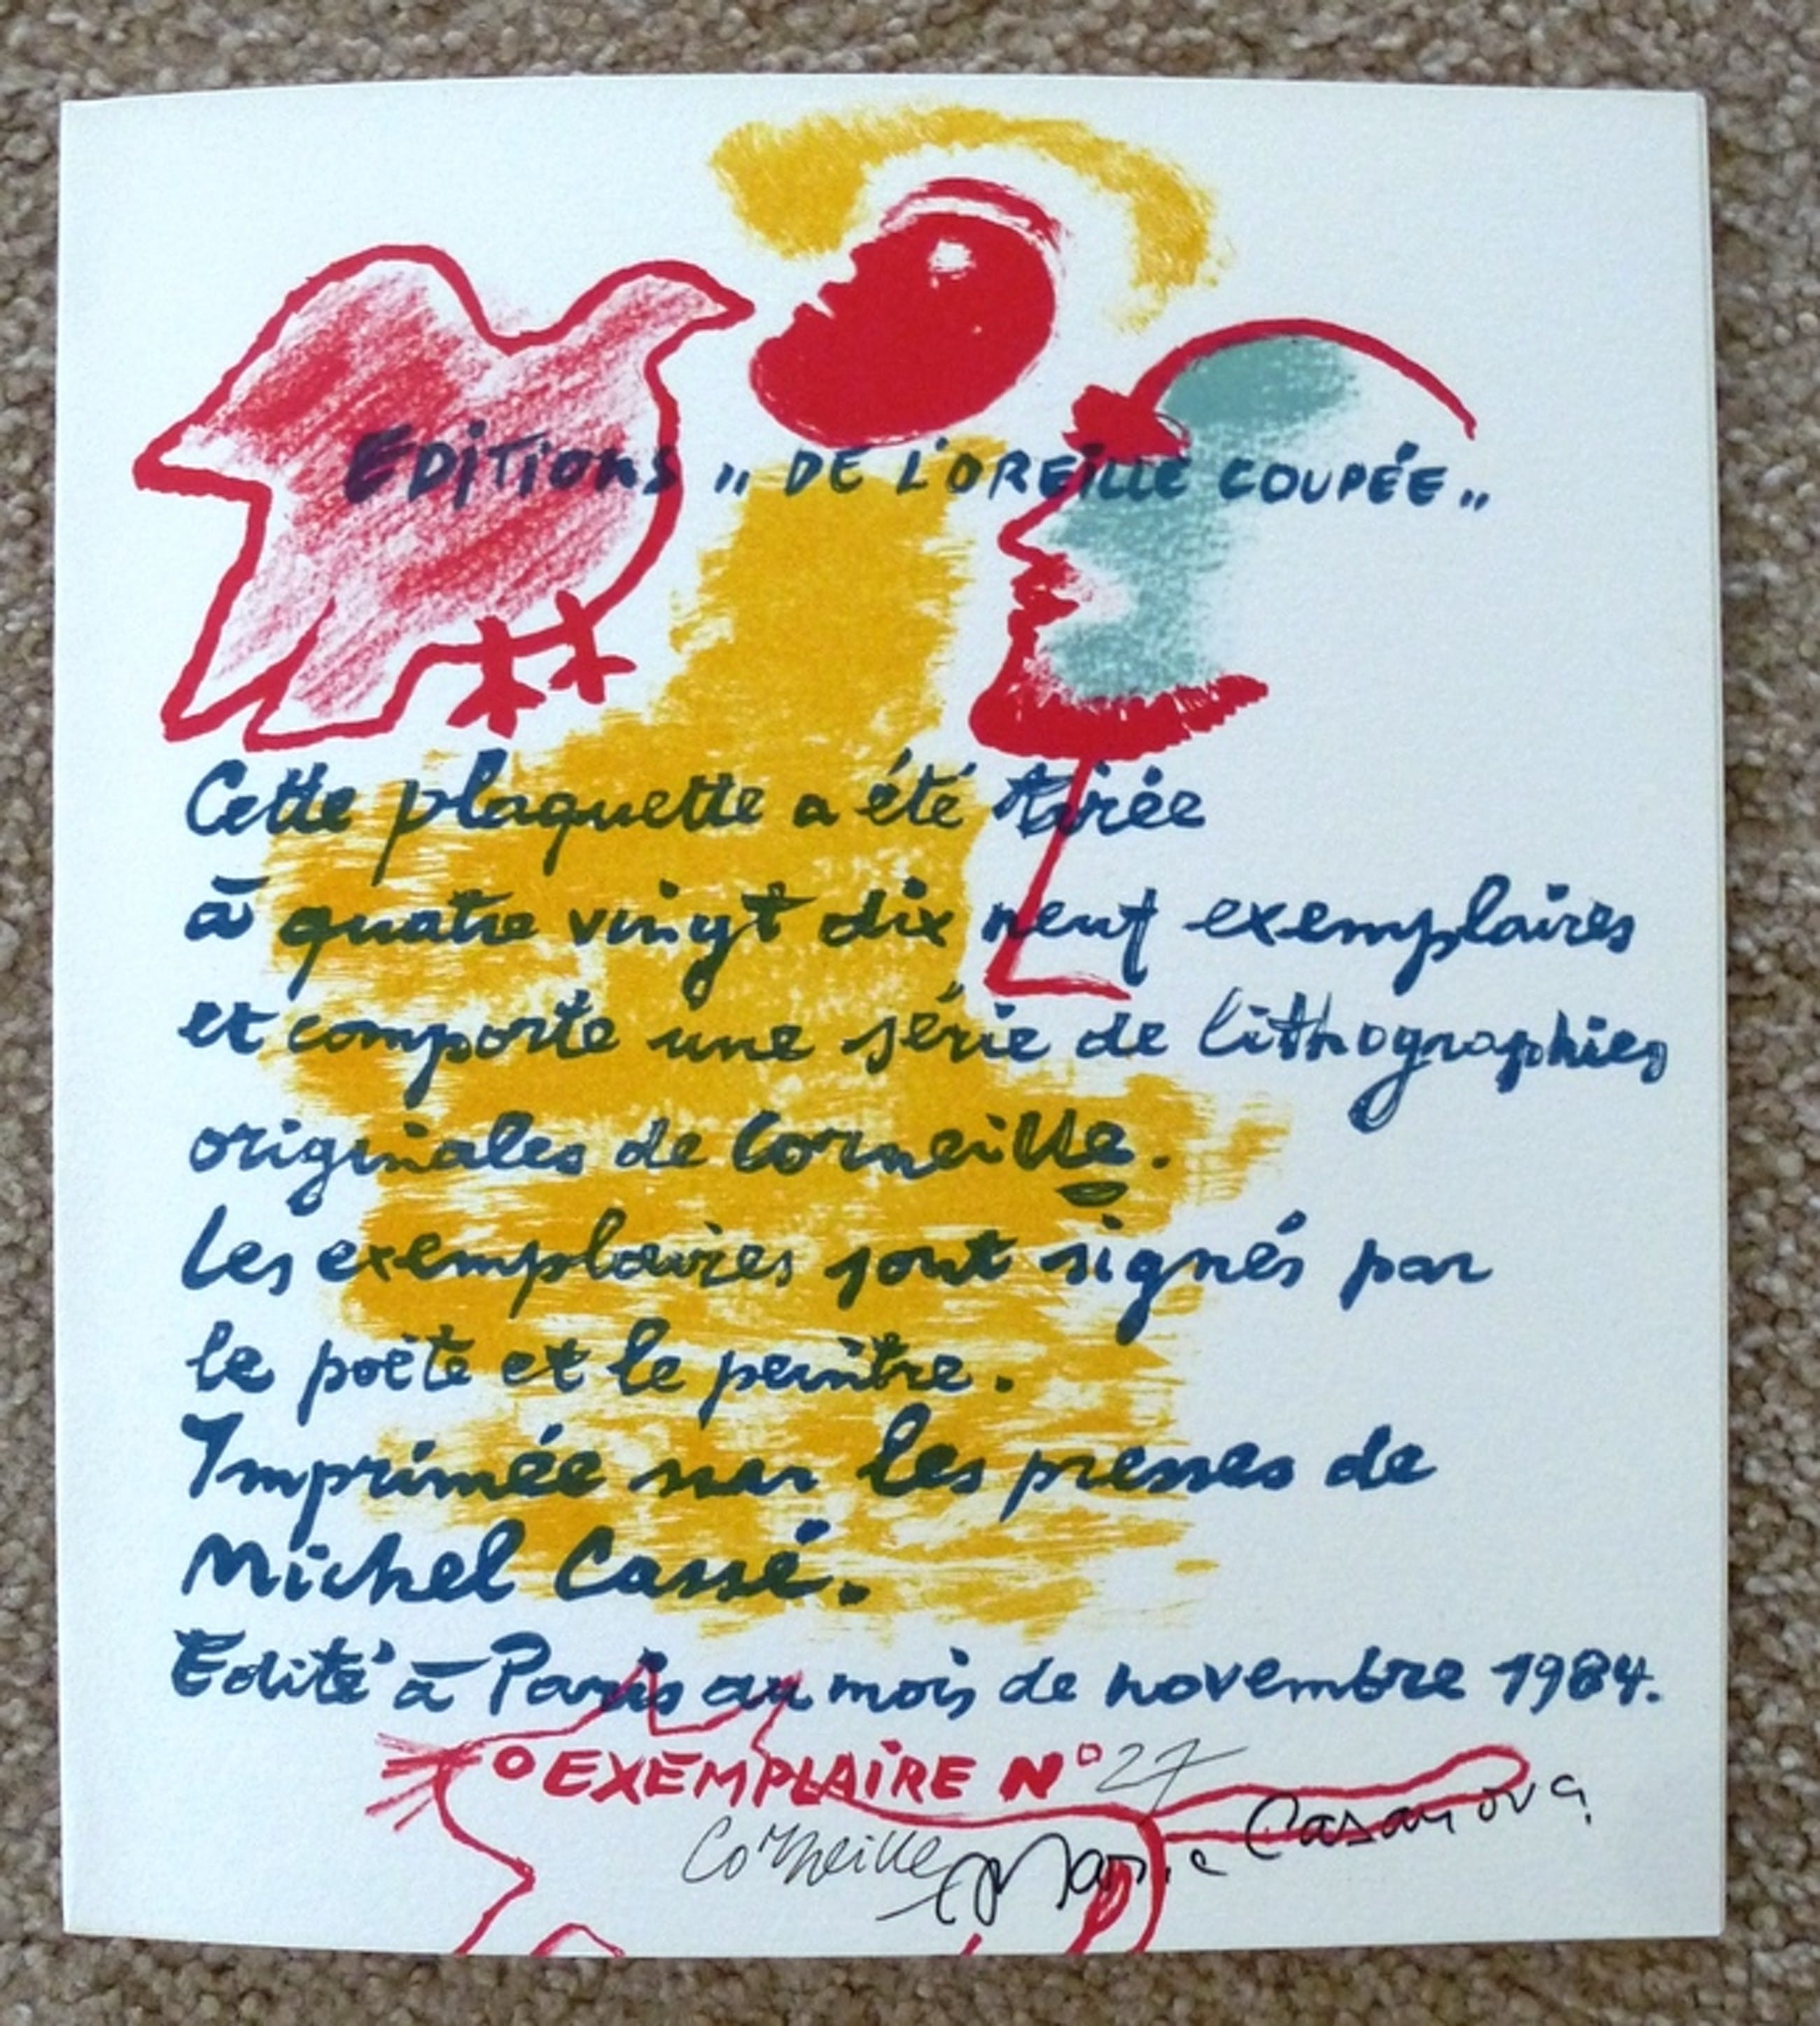 EDITIONS „ DE L'OREILLE COUPÉE „
Cette plaquette a été tirée
à quatre vingt dix neuf exemplaires
et comporte une série de lithographies
originales de Corneille.
Les exemplaires sont signés par
le poëte et le peintre.
Imprimée sur les presses de
Michel Cassé.
Edité à Paris au mois de novembre 1984.
EXEMPLAIRE N° 27
Corneille Marie Casanova